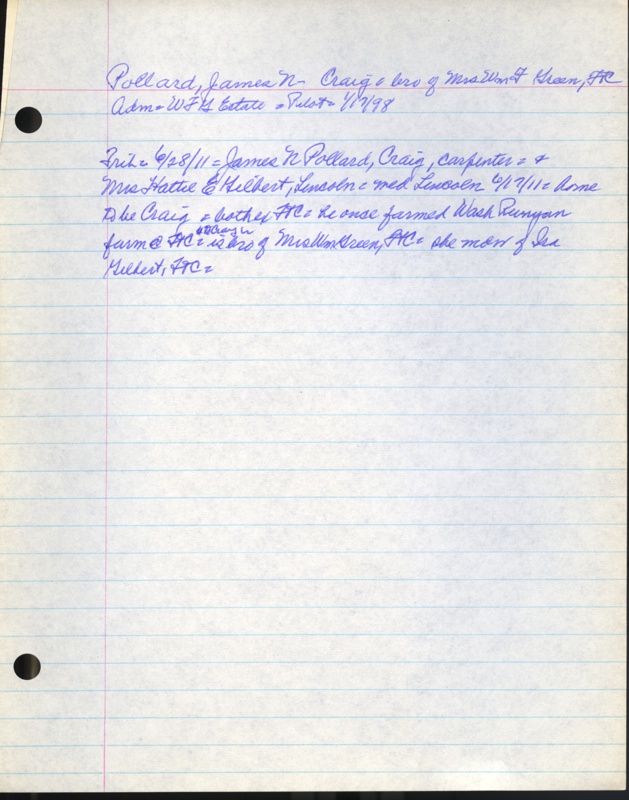 Pollard, James N - Craig = bro of Mrs Wm F Green, FtC
Adm = WFG Estate = Pilot = 1/17/98
Trib = 6/28/11 = James N Pollard, Craig, carpenter = &
Mrs Hattie E Gilbert, Lincoln = med Lincoln 6/17/11 = home
to be Craig = both ex FtC = he once farmed Wash Runyan
farm @ FtC = is bro of Mrs Wm Green, FtC = she mow of Ira
Gilbert, FtC =